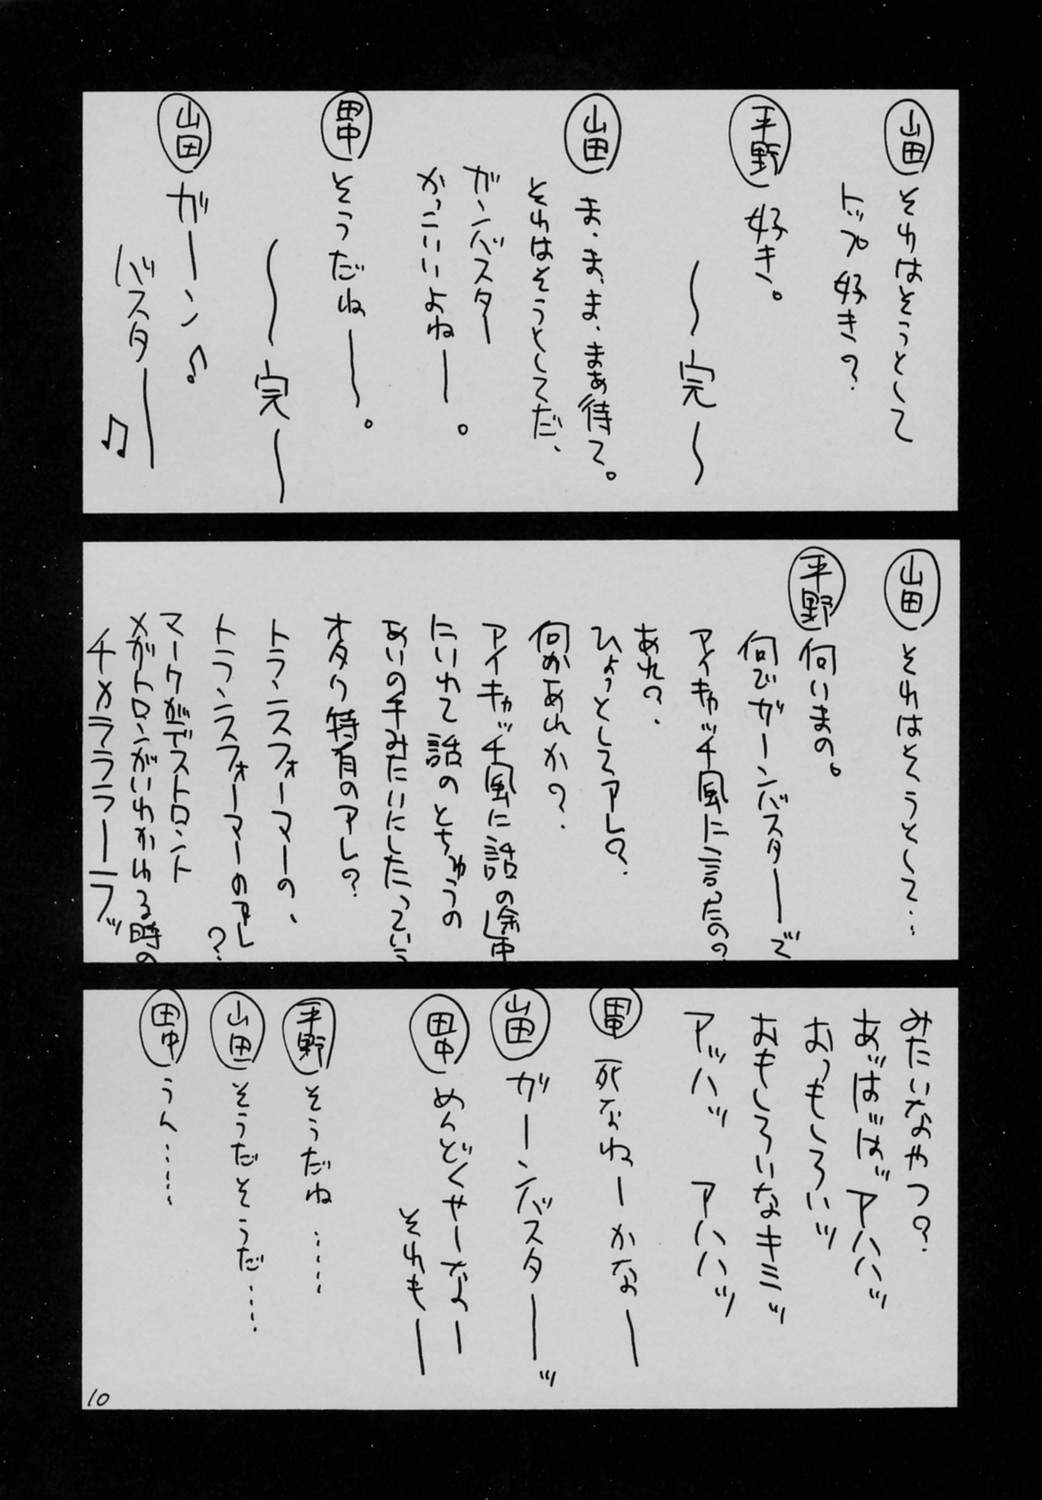 山田 それはそうとして
トップ好きの?
平野 好き。
〜完〜
山田 ま、ま、ま、まぁ待て。
それはそうとしてだ、
ガンバスター
かっこいいよねー。
田中 そうだねー〜。
〜完〜
山田 ガーン♪
バスター━♫
山田 それはそうとして…
平野 何いまの。
何でガーンバスターーで
アイキャッチ風に言ったの?
あれ?、
ひょっとしてアレ?
何かあれか?、
アイキャッチ風に話の途中
にいれて話のとちゅうの
あいの手みたいにしたっていう
オタク特有のアレ?
トランスフォーマーの、
トランスフォーマーのアレ?
マークがデストロント
メガトロンがいれかわる時の
チャラララーラッ
みたいなやつ?
あッはッはッアハハッ
おっもしろいッ
おもしろいなキミッ
アッハッ アハハッ
田中 死なねーかなー
山田 ガーンバスターーッ
田中 めんどくせーなー
それもー
平野 そうだね……
山田 そうだそうだ……
田中 うん……
10